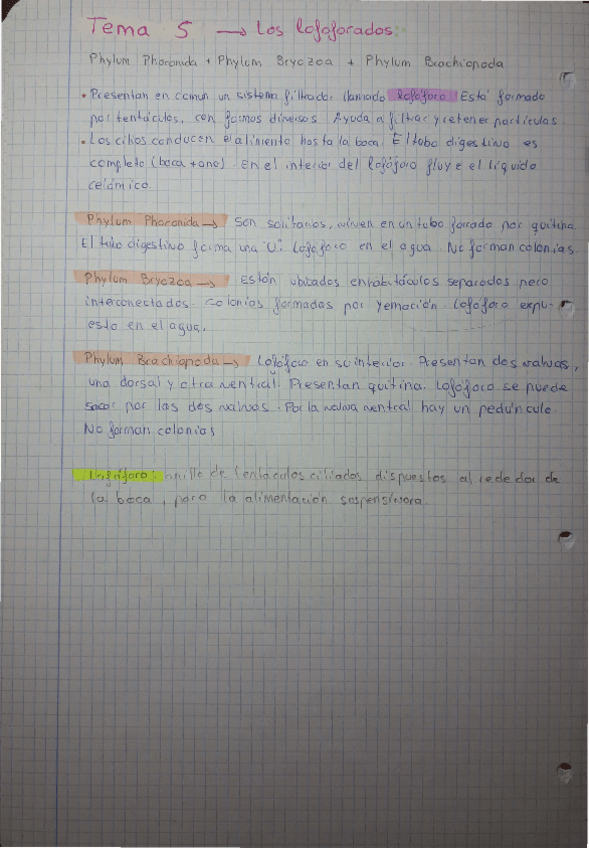 Tema 5 → Los Lofoforados.
Phylum Phoronida + Phylum Bryozoa + Phylum Brachiopoda
• Presentan en comun un sistema filtrador llamado lofóforo. Está formado
por tentáculos, con formas diversas. Ayuda a filtrar y retener partículas.
• Los cilios conducen el alimento hasta la boca. El tubo digestivo es
completo (boca + ano). En el interior del lofóforo fluye el líquido
celómico.
Phylum Phoronida → Son solitarios, viven en un tubo forrado por quitina.
El tubo digestivo forma una "U". Lofóforo en el agua. No forman colonias.
Phylum Bryozoa → Están ubicados en habitáculos separados pero
interconectados. Colonias formadas por yemación. Lofoforo expu-
esto en el agua.
Phylum Brachiopoda → Lofóforo en su interior. Presentan dos valvas,
una dorsal y otra ventral. Presentan quitina. Lofóforo se puede
sacar por las dos valvas. Por la valva ventral hay un pedúnculo.
No forman colonias
Lofóforo: anillo de tentáculos ciliados dispuestos al rededor de
la boca, para la alimentación suspensívora.